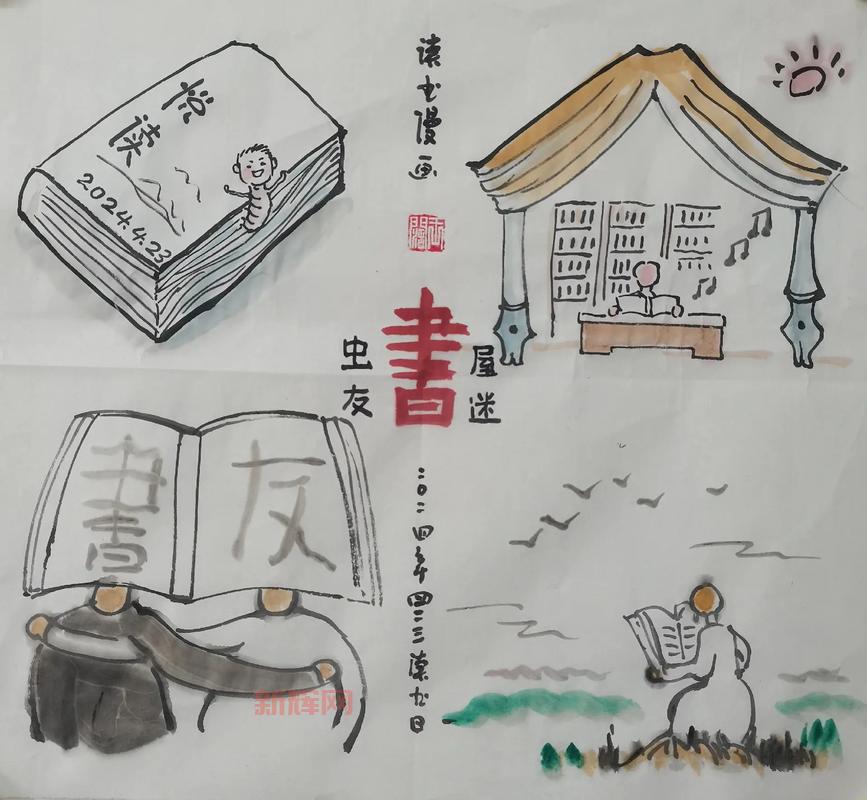 读书漫画
悦读
2024.4.23
書
虫
友
屋
迷
書友
二〇二四年四二三读书日
新辉网